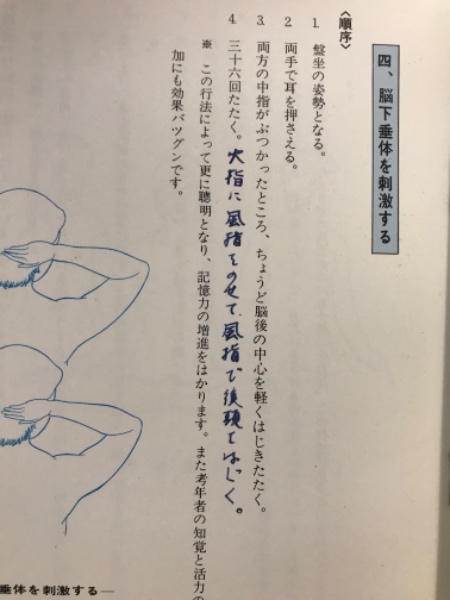 四、脳下垂体を刺激する
〈順序〉
1. 盤坐の姿勢となる。
2 両手で耳を押さえる。
3. 両方の中指がぶつかったところ、ちょうど脳後の中心を軽くはじきたたく。
4. 三十六回たたく。火指に風指をのせて、風指で後頭をはじく。
※ この行法によって更に聰明となり、記憶力の増進をはかります。また考年者の知覚と活力の
加にも効果バツグンです。
垂体を刺激する―